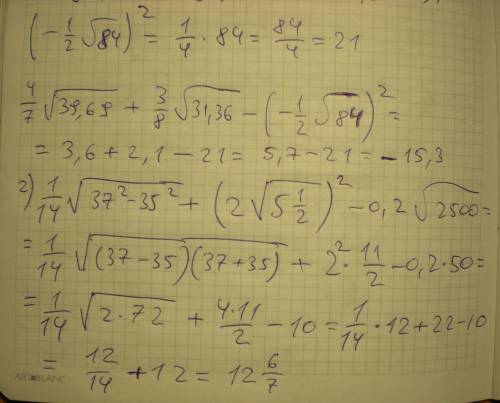 (-1/2 √84)² = 1/4 · 84 = 84/4 = 21
4/7 √39,69 + 3/8 √31,36 - (-1/2 √84)² =
= 3,6 + 2,1 - 21 = 5,7 - 21 = -15,3
2) 1/14 √37² - 35² + (2√5 1/2)² - 0,2 √2500 =
= 1/14 √(37 - 35)(37 + 35) + 2² · 11/2 - 0,2 · 50 =
= 1/14 √2 · 72 + 4 · 11/2 - 10 = 1/14 · 12 + 22 - 10
= 12/14 + 12 = 12 6/7
ARTBLANC